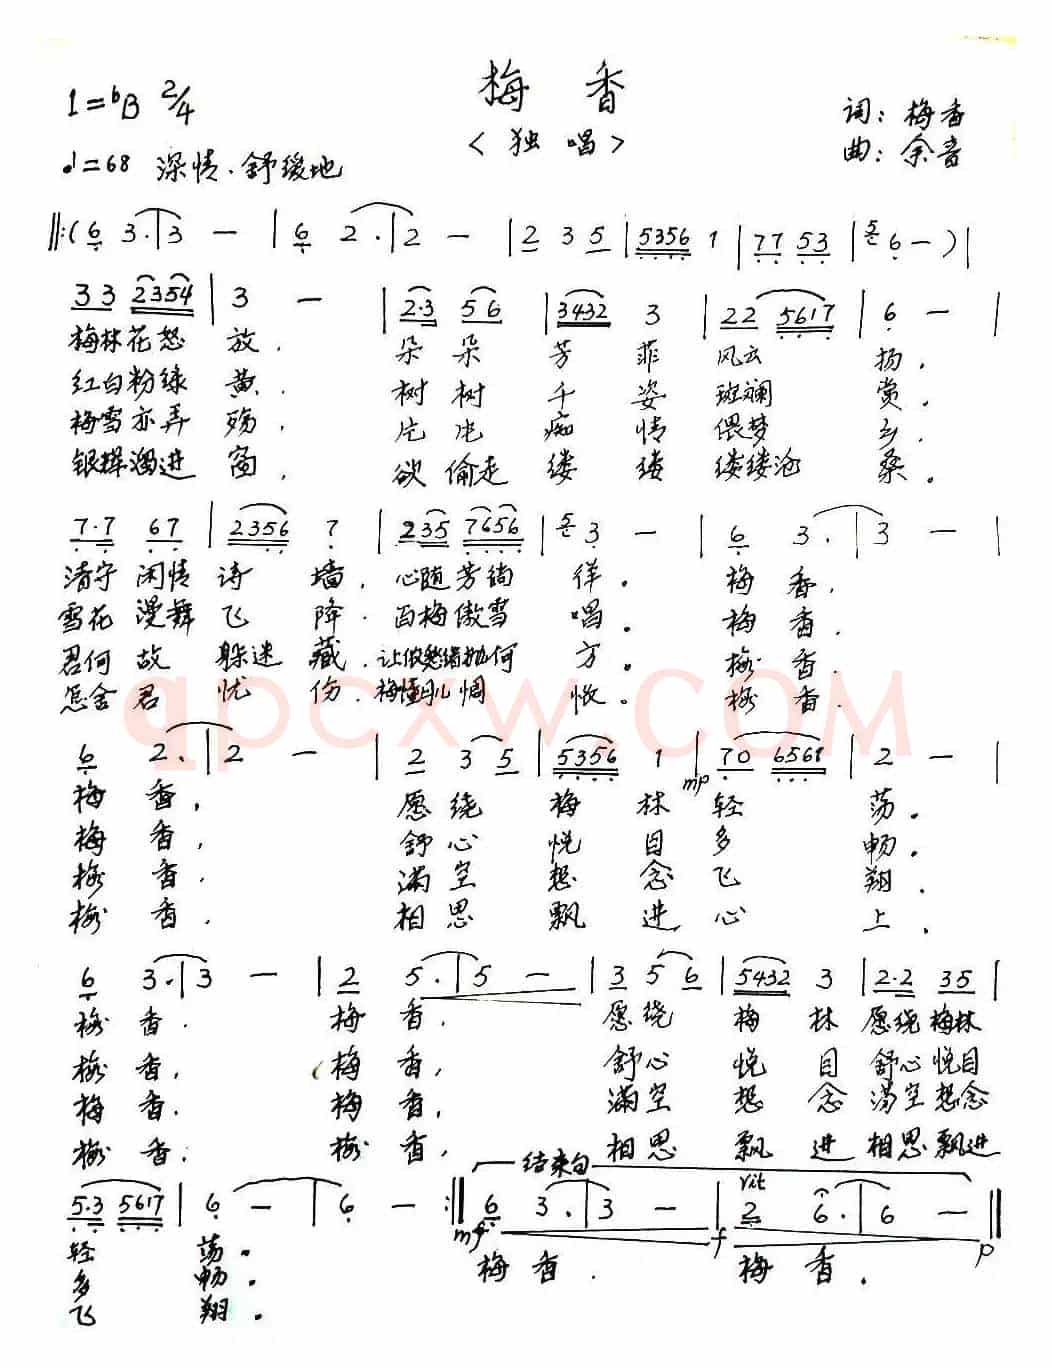 梅 香
1=♭B 2/4
<独 唱>
词：梅香
♩=68 深情·舒缓地
曲：余音
‖:(6 3·|3 - | 6 2·|2 - | 2 3 5 | 5356 1 | 77 53 | 5 6 - )|
33 2354 | 3 - | 2·3 56 | 3432 3 | 22 5617 | 6 - |
梅林花怒 放， 朵朵 芳菲 风云 扬，
红白粉绿 黄． 树树 千姿 斑斓 赏。
梅雪亦弄 殇， 片片 痴情 偎梦 乡．
银辉溜进 窗， 欲偷走 缕缕 缕缕沧 桑。
7·7 67 | 2356 7 | 235 7656 | 5 3 - | 6 3·|3 - |
清守 闲情 诗 墙，心随芳徜 徉。 梅 香，
雪花 漫舞 飞 降．百梅傲雪 唱。 梅 香．
君何 故 躲迷 藏，让似愁绪抛何 方。 梅 香．
怎舍 君 忧 伤．梅懂 惆 怅。 梅 香．
6 2·|2 - | 2 3 5 | 5356 1 | mp 70 6561 | 2 - |
梅 香， 愿绕 梅 林 轻 荡。
梅 香， 舒心 悦 目 多 畅。
梅 香． 满空 想 念 飞 翔．
梅 香． 相思 飘 进 心 上．
6 3·|3 - | 2 5·|5 - | 3 5 6 | 5432 3 | 2·2 35 |
梅 香． 梅 香． 愿绕 梅 林 愿绕梅林
梅 香， 梅 香， 舒心 悦 目 舒心悦目
梅 香． 梅 香， 满空 想 念 满空想念
梅 香． 梅 香． 相思 飘 进 相思飘进
结束句
5·3 5617 | 6 - | 6 - :‖ mf 6 3·|3 - | f rit 2 6·|6 - ‖ p
轻 荡。 梅 香． 梅 香．
多 畅。
飞 翔。
qpcxw.COM